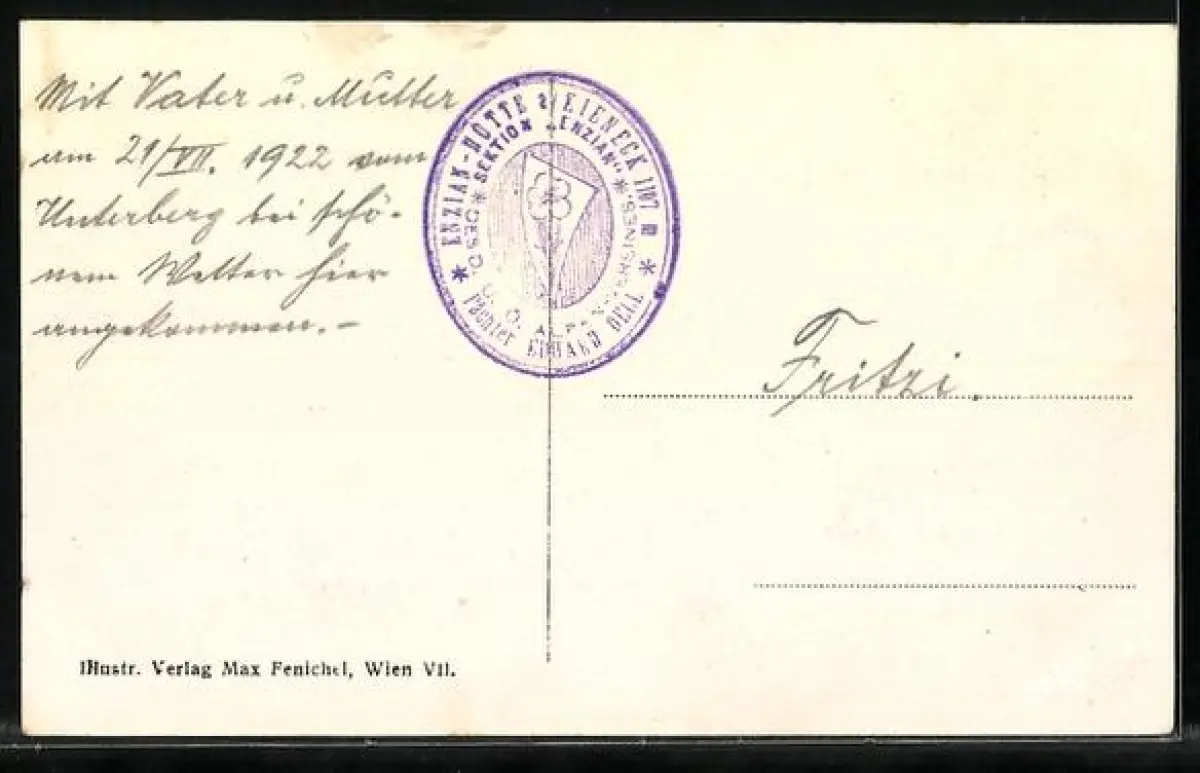 Mit Vater u. Mutter
am 21/VII. 1922 vom
Unterberg bei schö-
nem Wetter hier
angekommen. –
* ENZIAN-HÜTTE KIENECK 1107 m *
DES D. U. Ö. ALPENVEREINES. * SEKTION „ENZIAN“ *
Pächter EDUARD DELL
Fritzi.
Illustr. Verlag Max Fenichel, Wien VII.